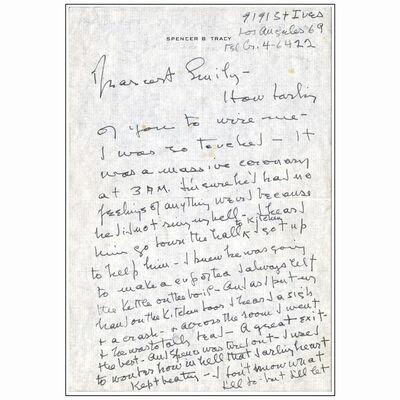 9191 St Ives
Los Angeles 69
Tel Cr. 4-6422
SPENCER B TRACY
Dearest Emily-
How darling
of you to wire me-
I was so touched - It
was a massive coronary
at 3 A.M. I'm sure he'd had no
feelings of anything weird because
he did not ring my bell - I heard
him go down the hall to kitchen & got up
to help him - I knew he was going
to make a cup of tea & always left
the kettle on the boil - And as I put my
hand on the kitchen door I heard a sigh
& a crash - & across the room I went
& he was totally dead - A great exit -
the best - And Spence was worn out - I used
to wonder how in hell that darling heart
kept beating - I don't know what
I'll do - but I'll let